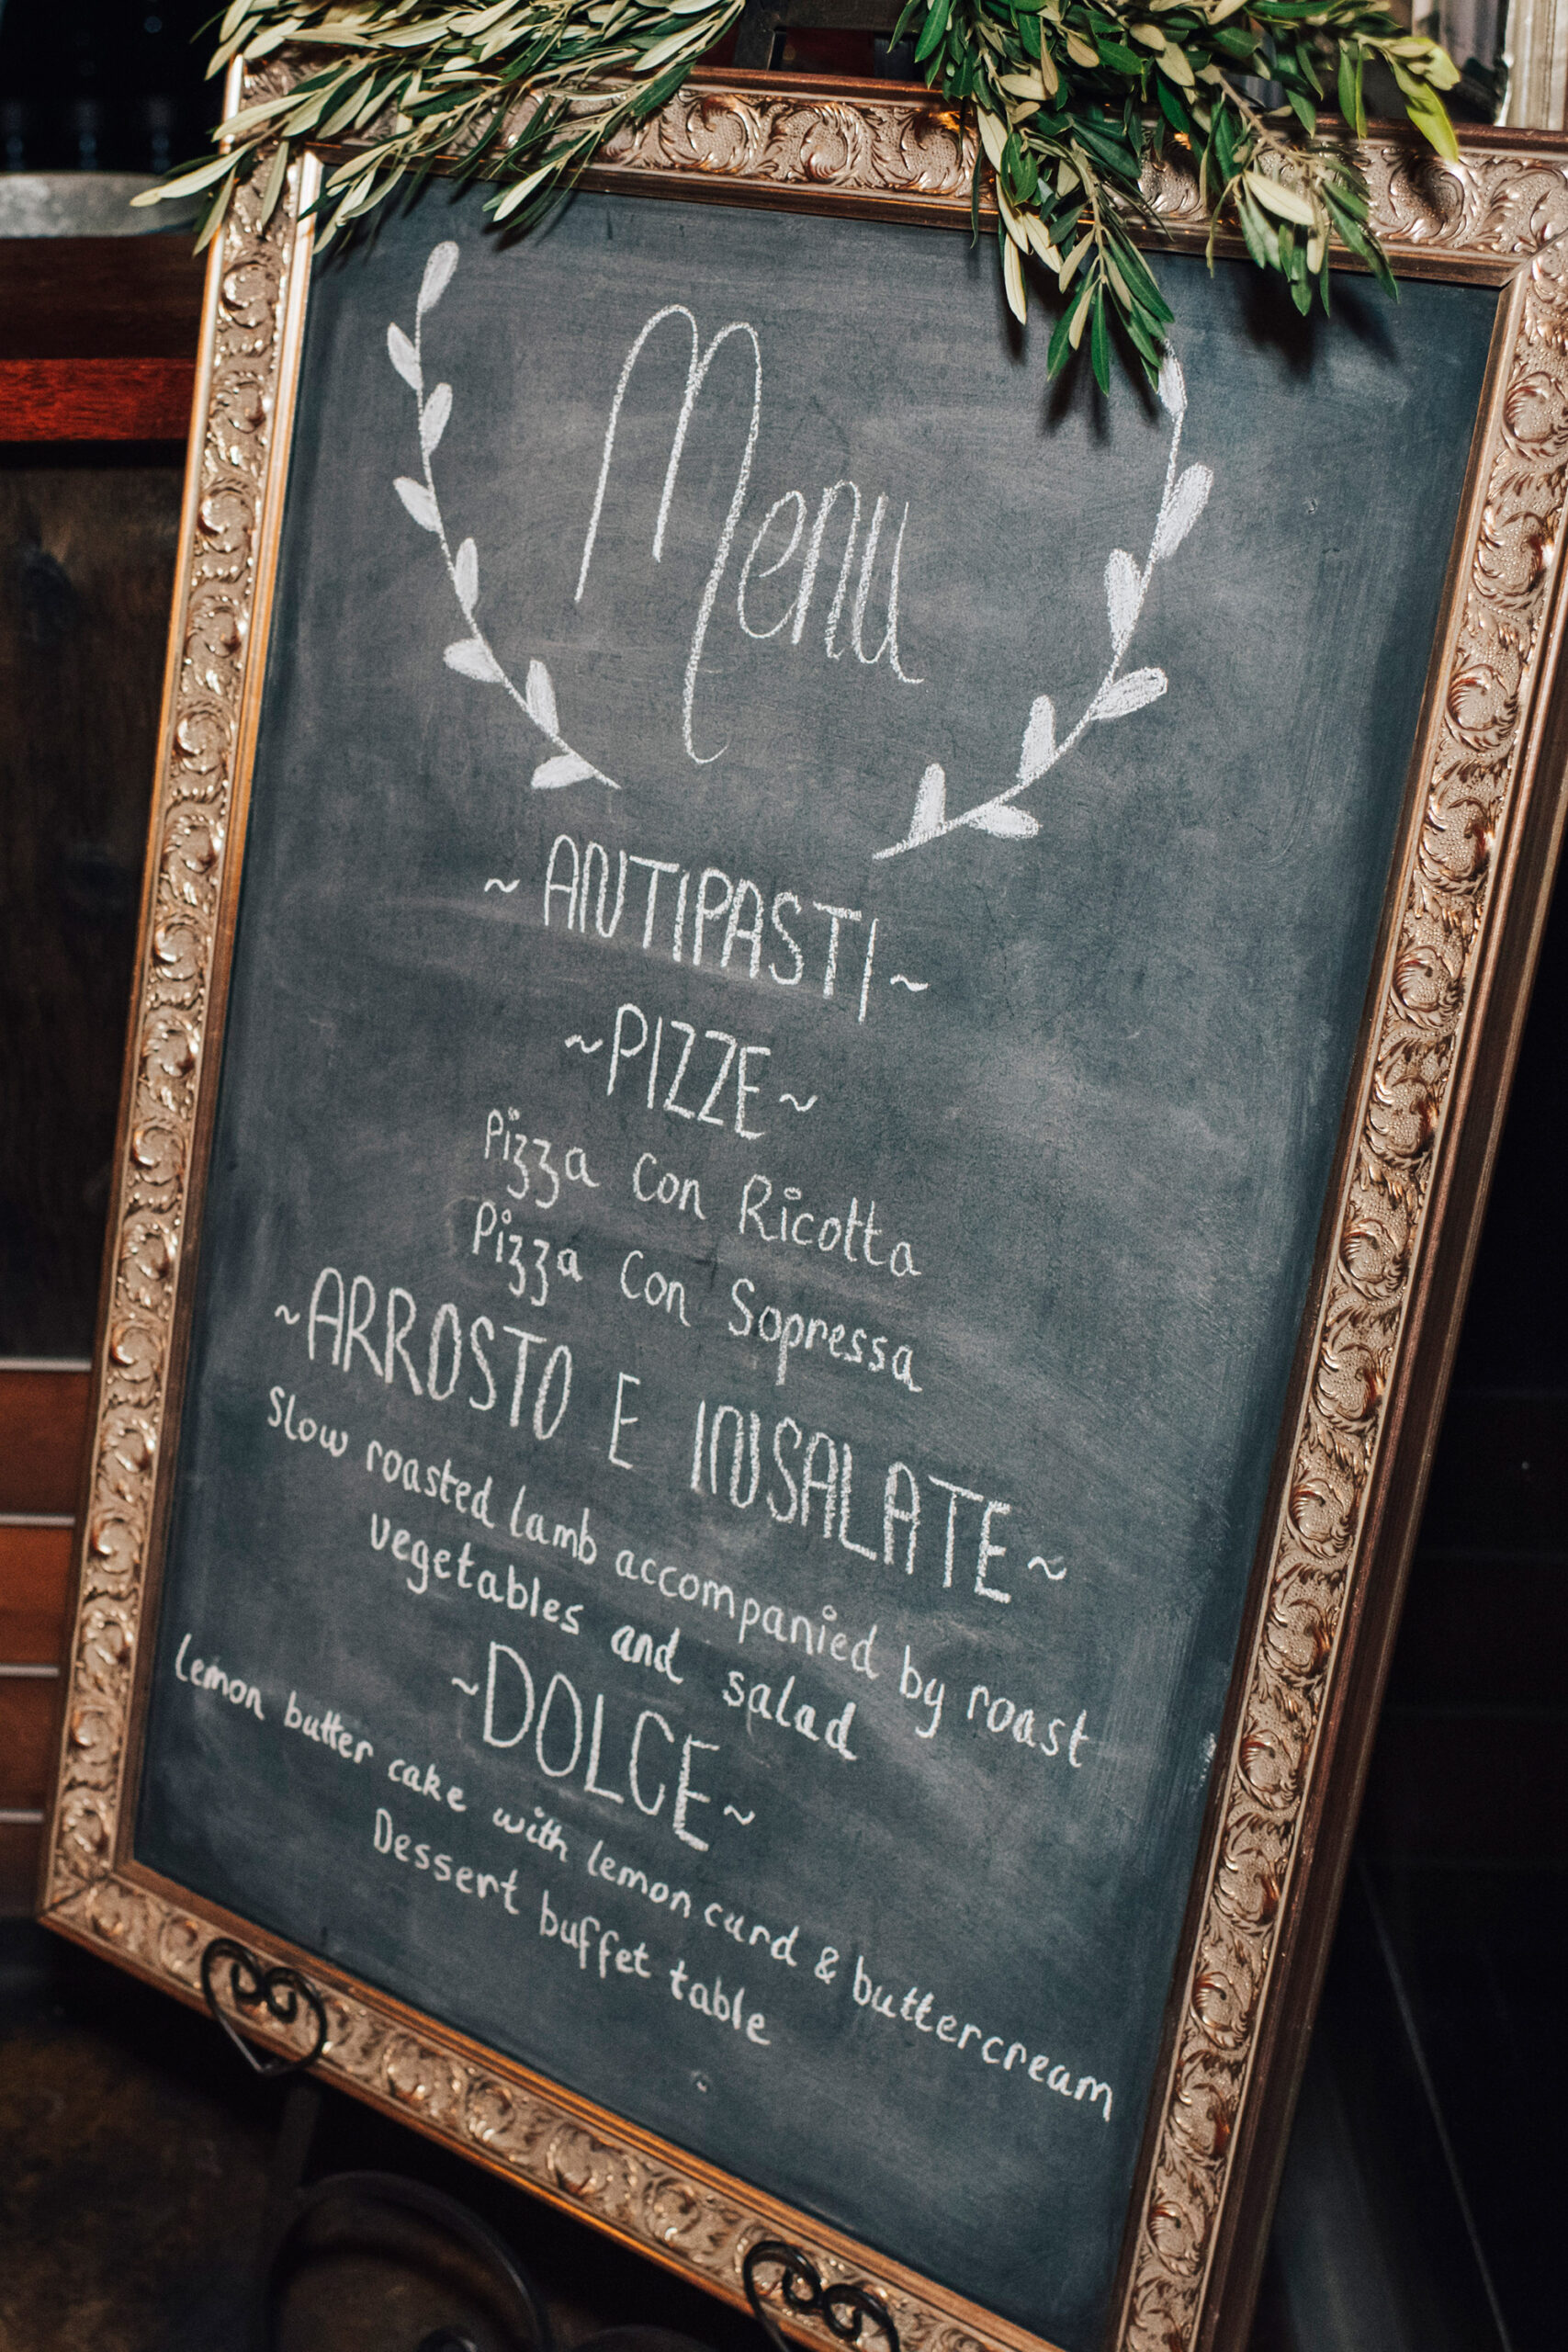 Menu
~ ANTIPASTI ~
~ PIZZE ~
Pizza con Ricotta
Pizza con Sopressa
~ ARROSTO E INSALATE ~
Slow roasted lamb accompanied by roast
vegetables and salad
~ DOLCE ~
Lemon butter cake with lemon curd & buttercream
Dessert buffet table